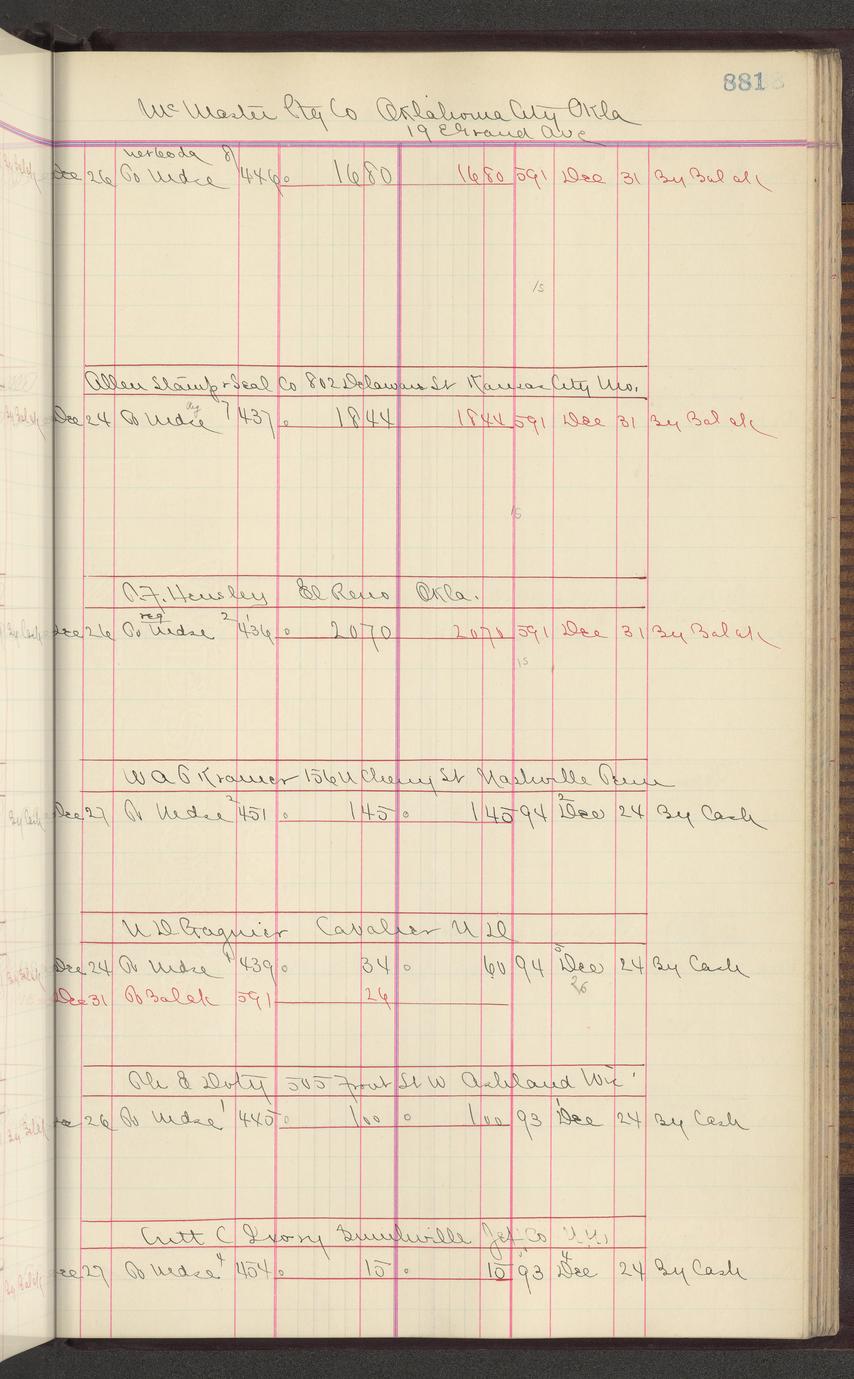 881
McMaster Ptg Co Oklahoma City Okla
19 E Grand Ave
Dec 26 To Mdse 8 446 1680 1680 591 Dec 31 By Bal ak
15
Allen Stamp + Seal Co 802 Delaware St Kansas City Mo.
Dec 24 To Mdse 7 437 1844 1844 591 Dec 31 By Bal ak
15
Hensley El Reno Okla.
reg
Dec 26 To Mdse 2 436 2070 2070 591 Dec 31 By Bal ak
15
W A P Kramer 156 N Cherry St Nashville Tenn
Dec 27 To Mdse 2 451 145 145 94 2 Dec 24 By Cash
N D Gagnier Cavalier N D
Dec 24 To Mdse 1 439 34 60 94 5 Dec 24 By Cash
26
Dec 31 To Bal ak 591 26
E Doty 505 Front St W Ashland Wis
26 To Mdse 1 445 100 100 93 1 Dec 24 By Cash
C Ivory Jef Co N.Y.
27 To Mdse 4 454 15 15 93 4 Dec 24 By Cash